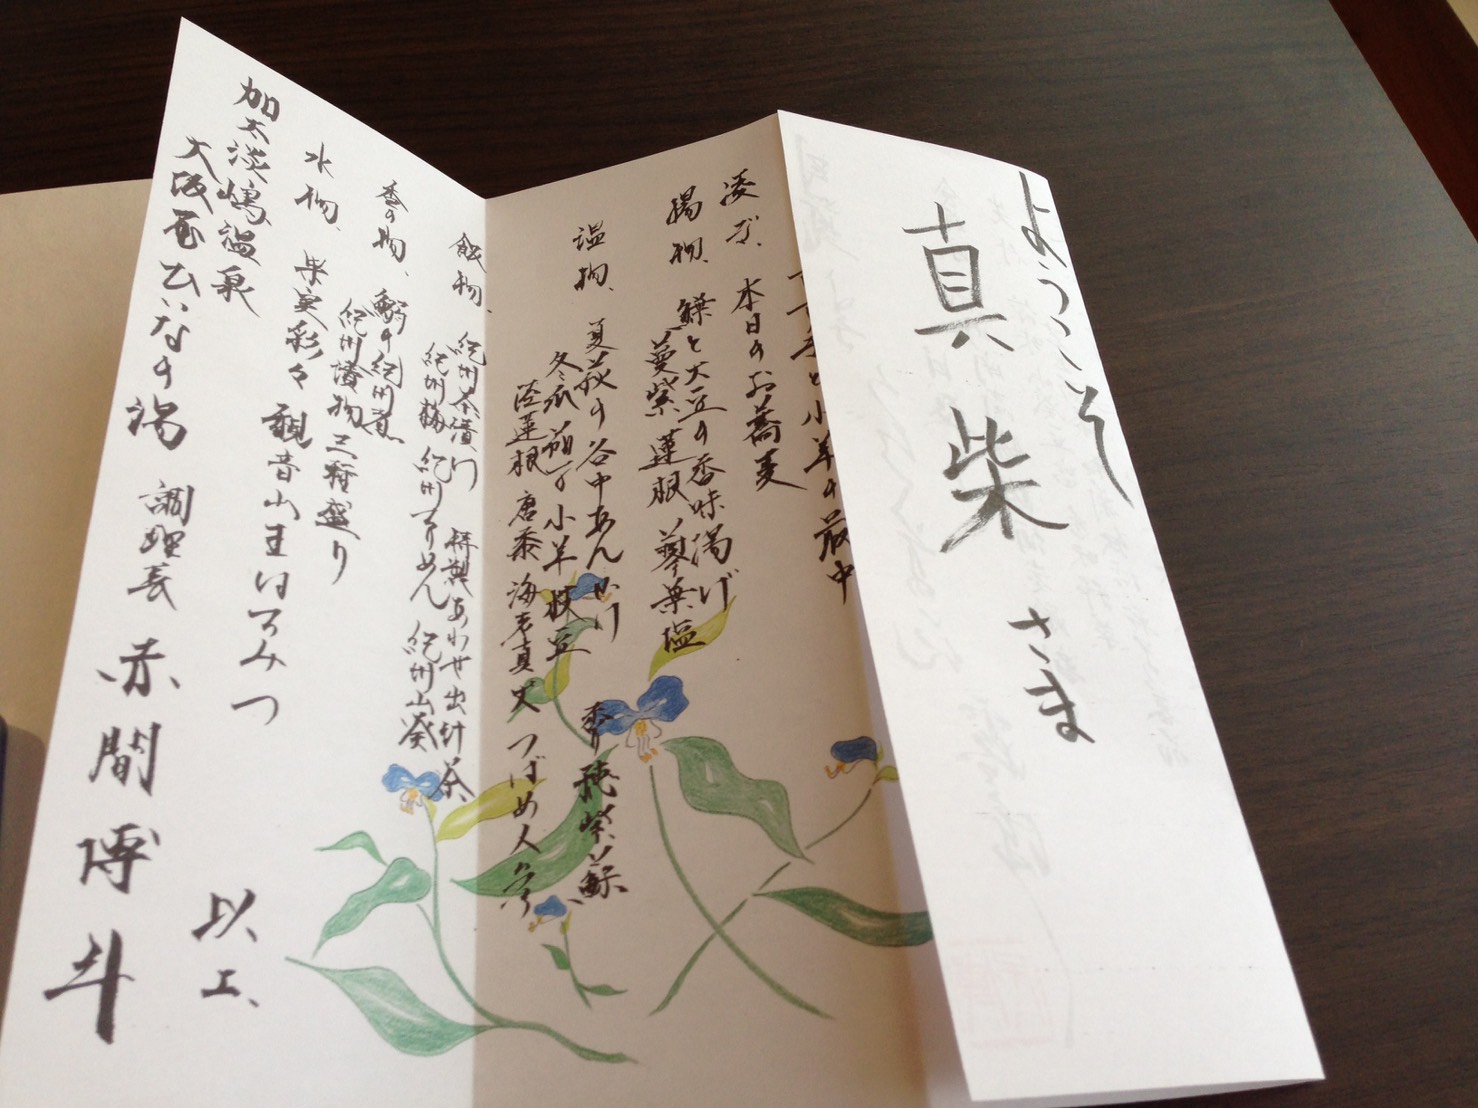 ようこそ
真柴 さま
凌ぎ、本日のお蕎麦
揚物、鰈と大豆の香味湯げ
蔓紫 蓮根 蓼葉塩
温物、夏荻の谷中あんかけ 香り穂紫蘇
冬瓜 小羊 枝豆
蓮根 唐黍 海老真丈 つばめ人参
飯物、紀州茶漬け 特製あわせ出汁茶
紀州梅 紀州つめん 紀州山葵
香の物、鰯の紀州煮
紀州漬物 三種盛り
水物、果実彩々 観音山まはつみつ
以上、
加太淡嶋温泉
大阪屋ひいなの湯 調理長 赤間博斗